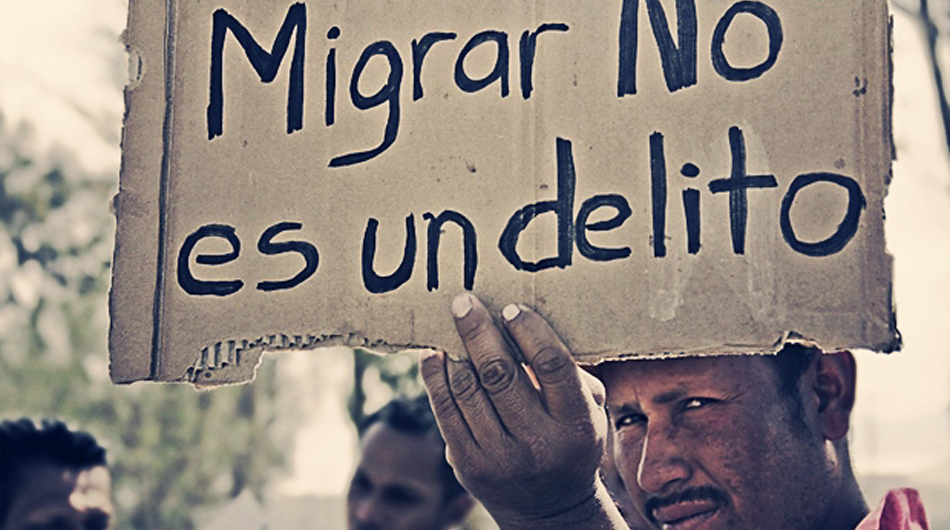 Migrar No
es un delito